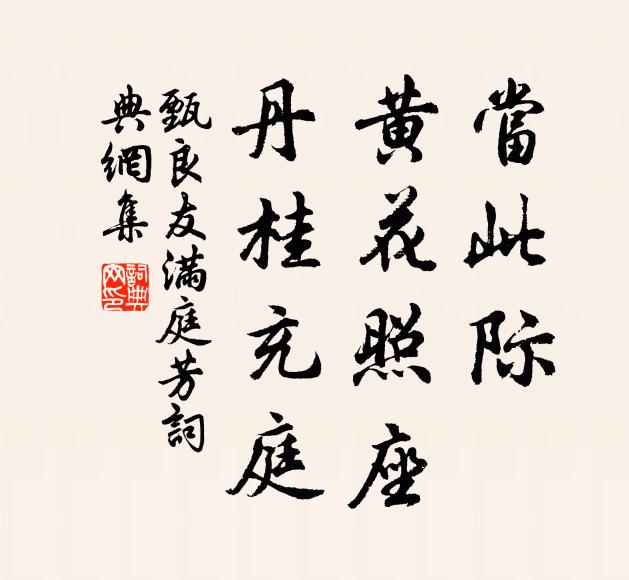 當此际
黃花照座
丹桂充庭
甄良友滿庭芳詞
典網集
詞典网印